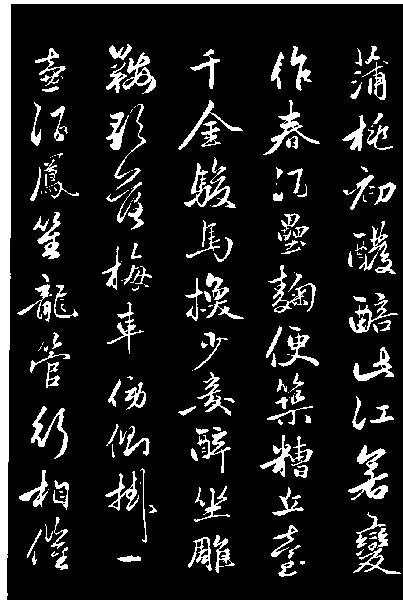 蒲桃初醱醅此江若變
作春酒壘麴便築糟丘臺
千金駿馬換少妾醉坐雕
鞍歌落梅車傍側掛一
壺酒鳳笙龍管行相催